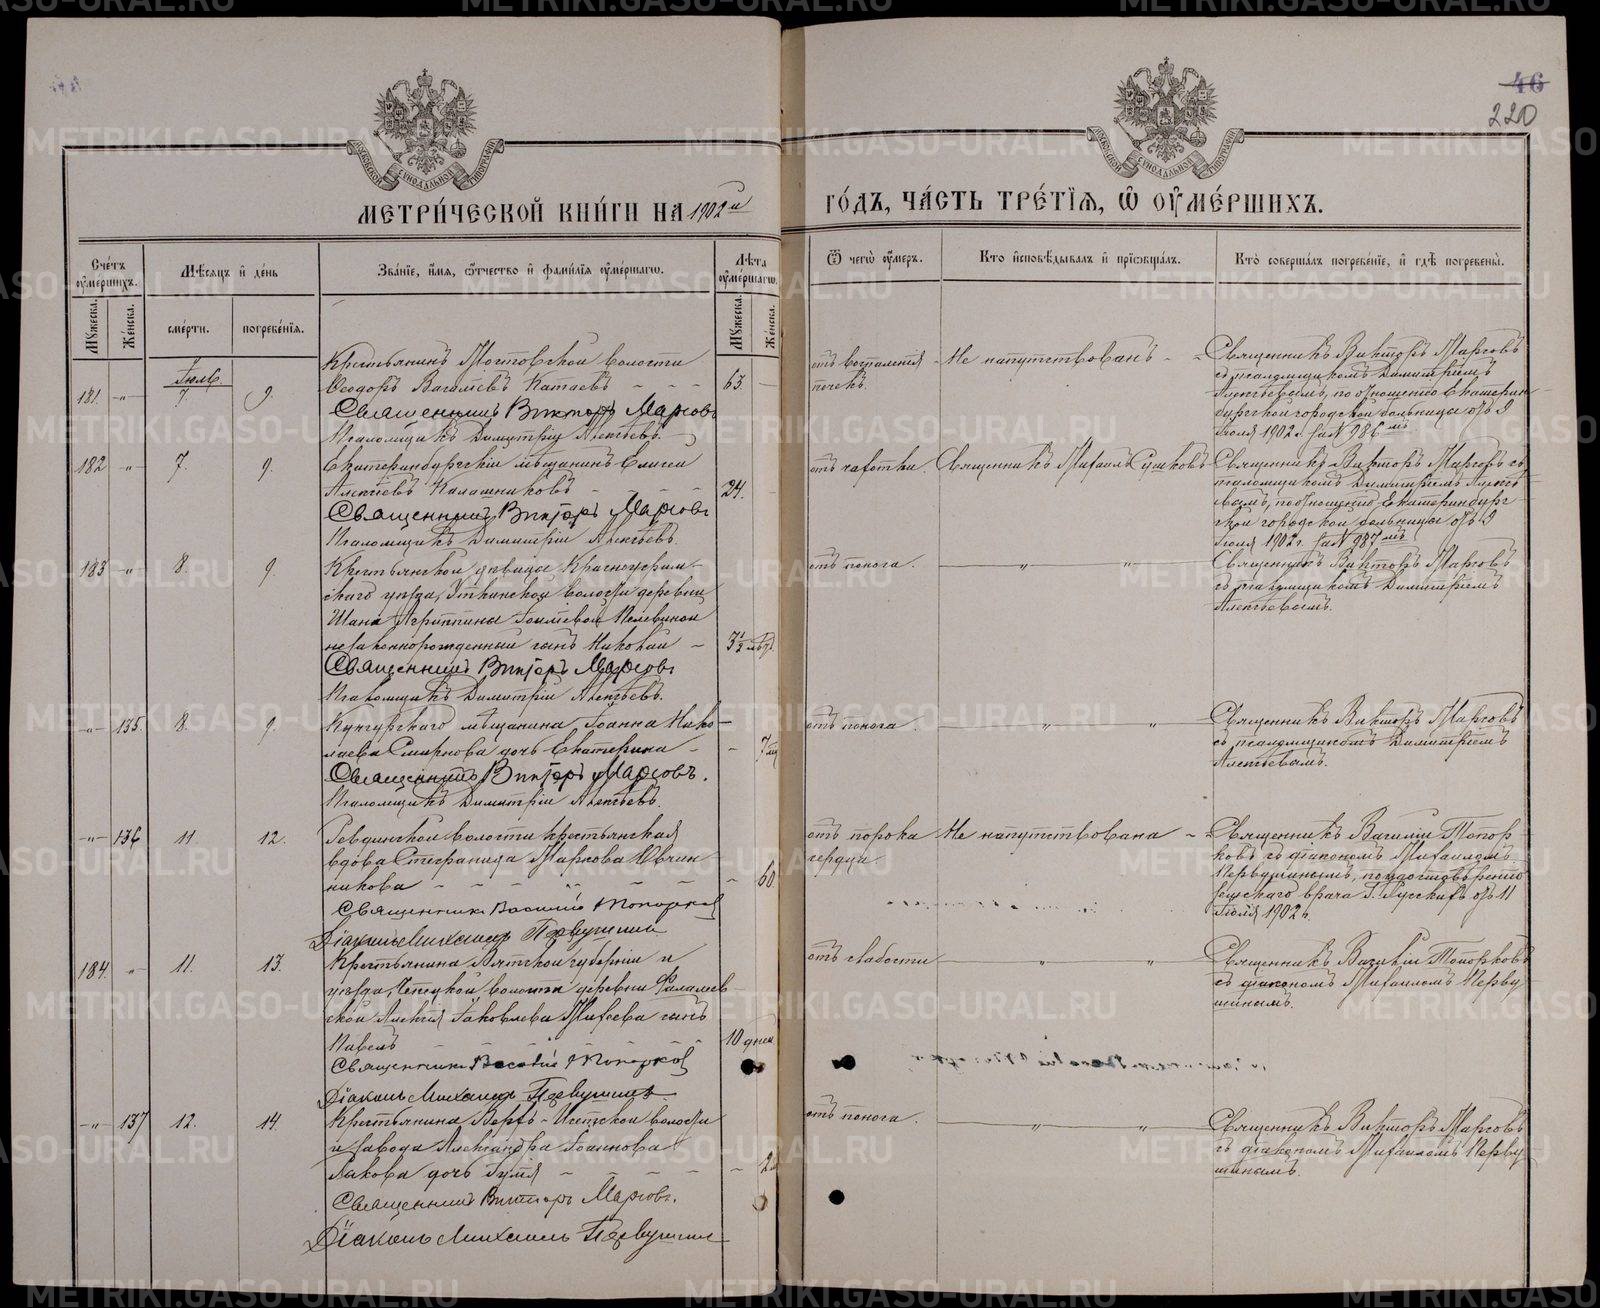 46
220
МЕТРИ́ЧЕСКОЙ КНИ́ГИ НА 1902й ГО́ДЪ, ЧА́СТЬ ТРЕ́ТІѦ, Ѿ ОУ҆МЕ́РШИХЪ.
Сче́тъ оу҆ме́ршихъ.
Мꙋ́жеска.
Же́нска.
Мѣ́сяцъ и҆ де́нь
сме́рти.
погребе́нїѧ.
Зва́нїе, и҆́мѧ, ѻ҆́тчество и҆ фами́лїѧ оу҆ме́ршагѡ.
Лѣ́та оу҆ме́ршагѡ.
Мꙋ́жеска.
Же́нска.
Ѿ чегѡ̀ оу҆́меръ.
Кто̀ и҆сповѣ́дывалъ и҆ прїѡбща́лъ.
Кто̀ соверша́лъ погребе́нїе, и҆ гдѣ̀ погребены̀.
Іюль
181. -"- 7 9.
Крестьянинъ Мостовской волости
Ѳеодоръ Васильевъ Катаевъ - - - 63 —
Священникъ Викторъ Марсовъ
Псаломщикъ Димитрій Алексѣевъ.
отъ воспаленія
почекъ.
Не напутствованъ
Священникъ Викторъ Марсовъ
съ псаломщикомъ Димитріемъ
Алексѣевымъ, по отношенію Екатерин-
бургской городской больницы отъ 9
Іюля 1902 г. за № 986мъ.
182 -"- 7. 9.
Екатеринбургскій мѣщанинъ Елисей
Алексѣевъ Калашниковъ - - - 24.
Священникъ Викторъ Марсовъ
Псаломщикъ Димитрій Алексѣевъ.
отъ чахотки.
Священникъ Михаилъ Сушковъ
Священникъ Викторъ Марсовъ съ
псаломщикомъ Димитріемъ Алексѣ-
евымъ, по отношенію Екатеринбург-
ской городской больницы отъ 9
Іюля 1902 г. за № 987мъ
183 -"- 8. 9.
Крестьянской дѣвицы Красноуфим-
скаго уѣзда, Уткинской волости деревни
Агриппины
незаконнорожденный сынъ Николай - 3½ мѣс.
Священникъ Викторъ Марсовъ
Псаломщикъ Димитрій Алексѣевъ.
отъ поноса. — " — " —
Священникъ Викторъ Марсовъ
съ псаломщикомъ Димитріемъ
Алексѣевымъ.
-"- 135. 8. 9.
Кунгурскаго мѣщанина Іоанна Нико-
лаева Смирнова дочь Екатерина - - 7
Священникъ Викторъ Марсовъ.
Псаломщикъ Димитрій Алексѣевъ.
отъ поноса. — " — " —
Священникъ Викторъ Марсовъ
съ псаломщикомъ Димитріемъ
Алексѣевымъ.
-"- 136 11. 12.
Ревдинской волости крестьянская
вдова Стефанида Маркова Ювчин
никова - - - - - - 60.
Священникъ Василій Топорковъ
Діаконъ Михаилъ Первушинъ
отъ порока
сердца
Не напутствована
Священникъ Василій Топор-
ковъ съ діакономъ Михаиломъ
Первушинымъ, по удостовѣренію
земскаго врача Г. Русскихъ отъ 11
Іюля 1902 г.
184. -"- 11. 13.
Крестьянина Вятской губерніи и
уѣзда, Чепецкой волости деревни Фалалеев
ской Алексія Іаковлева Михеева сынъ
Павелъ - - - - 10 дней
Священникъ Василій Топорковъ
Діаконъ Михаилъ Первушинъ.
отъ слабости — " — " —
Священникъ Василій Топорковъ
съ діакономъ Михаиломъ Перву
шинымъ.
-"- 137 12. 14.
Крестьянина Верхъ-Исетской волости
и завода Александра Іоаннова
дочь Юлія - - - - - 2
Священникъ Викторъ Марсовъ.
Діаконъ Михаилъ Первушинъ
отъ поноса. — " — " —
Священникъ Викторъ Марсовъ
съ діакономъ Михаиломъ Перву
шинымъ.
METRIKI.GASO-URAL.RU